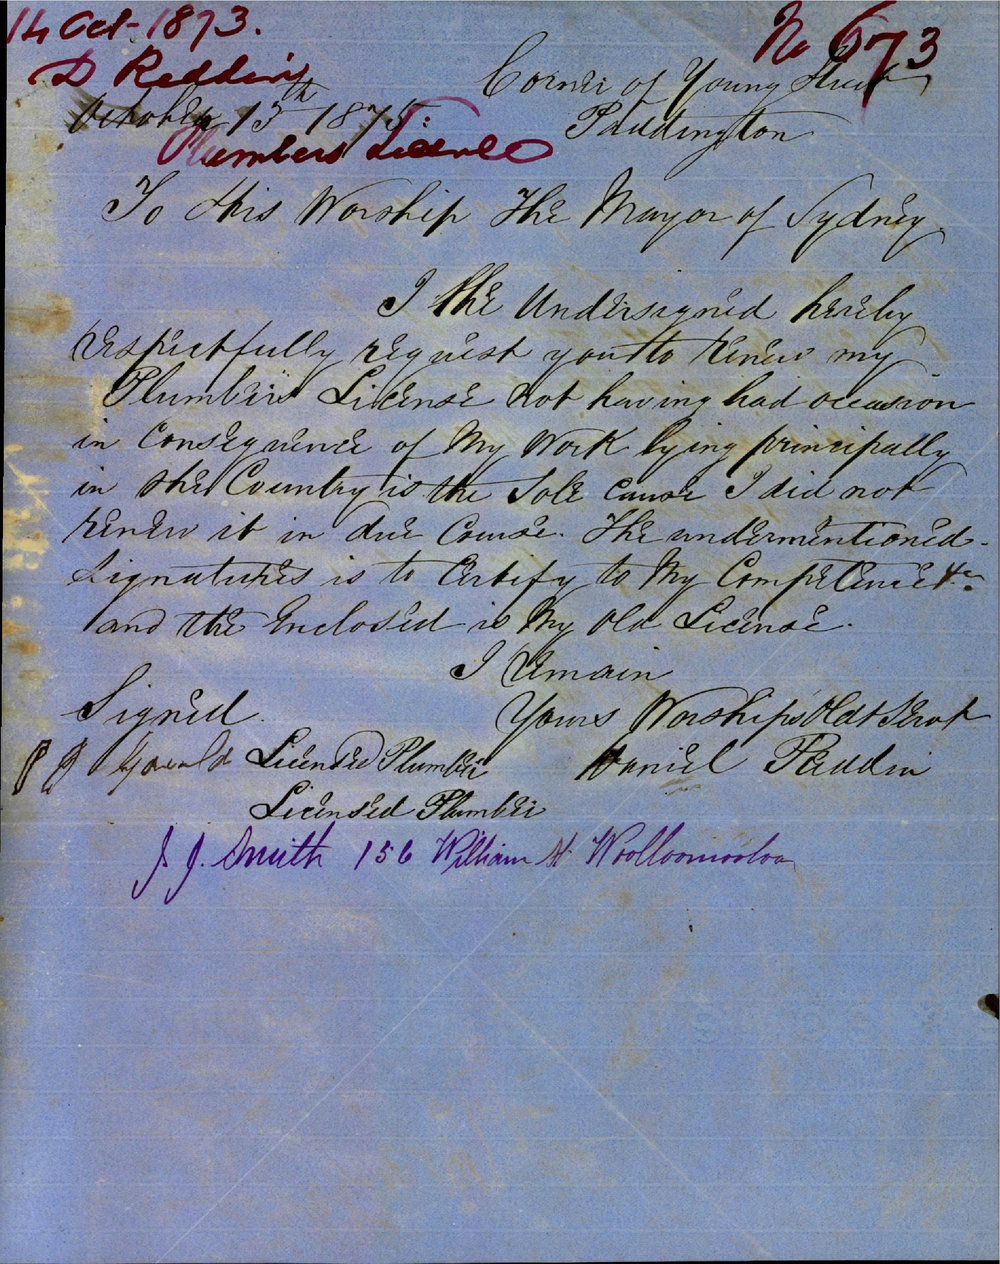 14 Oct - 1873.
No 673
D Reddin
Corner of Young Street
October 13th 1873
Paddington
Plumbers License
To His Worship The Mayor of Sydney.
I the Undersigned hereby
respectfully request you to renew my
Plumbers License not having had occasion
in consequence of My Work lying principally
in the Country is the Sole cause I did not
renew it in due Course. The undermentioned
Signatures is to Certify to My Competence &c
and the Enclosed is My Old License.
I remain
Signed
Yours Worships Obdt Servt
Licensed Plumber
Daniel Reddin
Licensed Plumber
J. J. Smith 156 William St Woolloomooloo